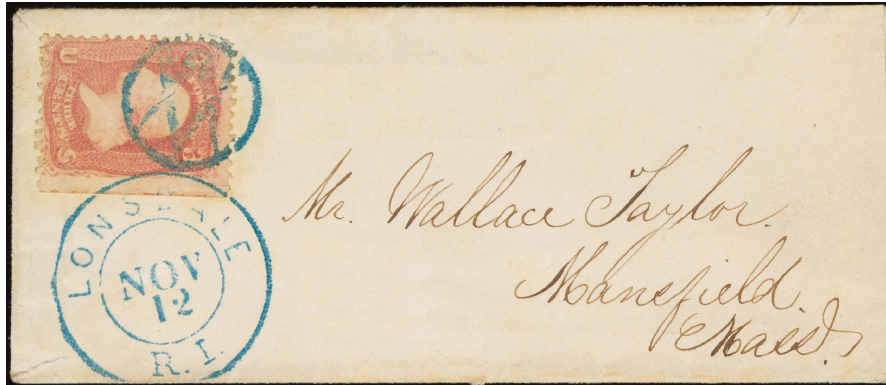 LONSDALE
NOV
12
R.I.
Mr. Wallace Taylor.
Mansfield
Mass.